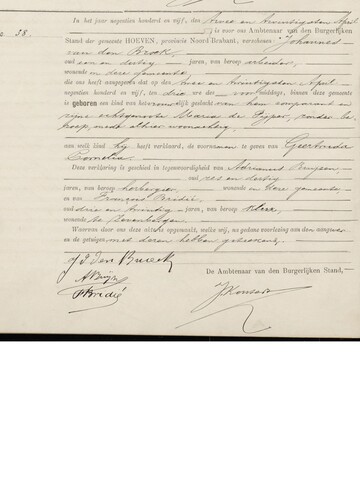 38.
In het jaar negentien honderd en vijf, den twee en twintigsten April
is voor ons Ambtenaar van den Burgerlijken
Stand der gemeente HOEVEN, provincie Noord-Brabant, verschenen: Johannes
van den Broek
oud een en dertig jaren, van beroep arbeider,
wonende en deze gemeente
die ons heeft aangegeven dat op den twee en twintigsten April
negentien honderd en vijf, ten drie ure des voormiddags, binnen deze gemeente
is geboren een kind van het vrouwelijk geslacht van hem comparant en
zijne echtgenoote Maria de Pijper, zonder be
roep, mede alhier woonachtig
aan welk kind hij heeft verklaard, de voornamen te geven van Geertruida
Cornelia.
Deze verklaring is geschied in tegenwoordigheid van Adrianus
oud zes en dertig
jaren, van beroep herbergier, wonende en deze gemeente
en van François Bridié,
oud drie en twintig jaren, van beroep klerk,
wonende te Zevenbergen
Waarvan door ons deze akte opgemaakt, welke wij, na gedane voorlezing aan den aangever
en de getuigen, met dezen hebben geteekend.
De Ambtenaar van den Burgerlijken Stand,
F Bridié